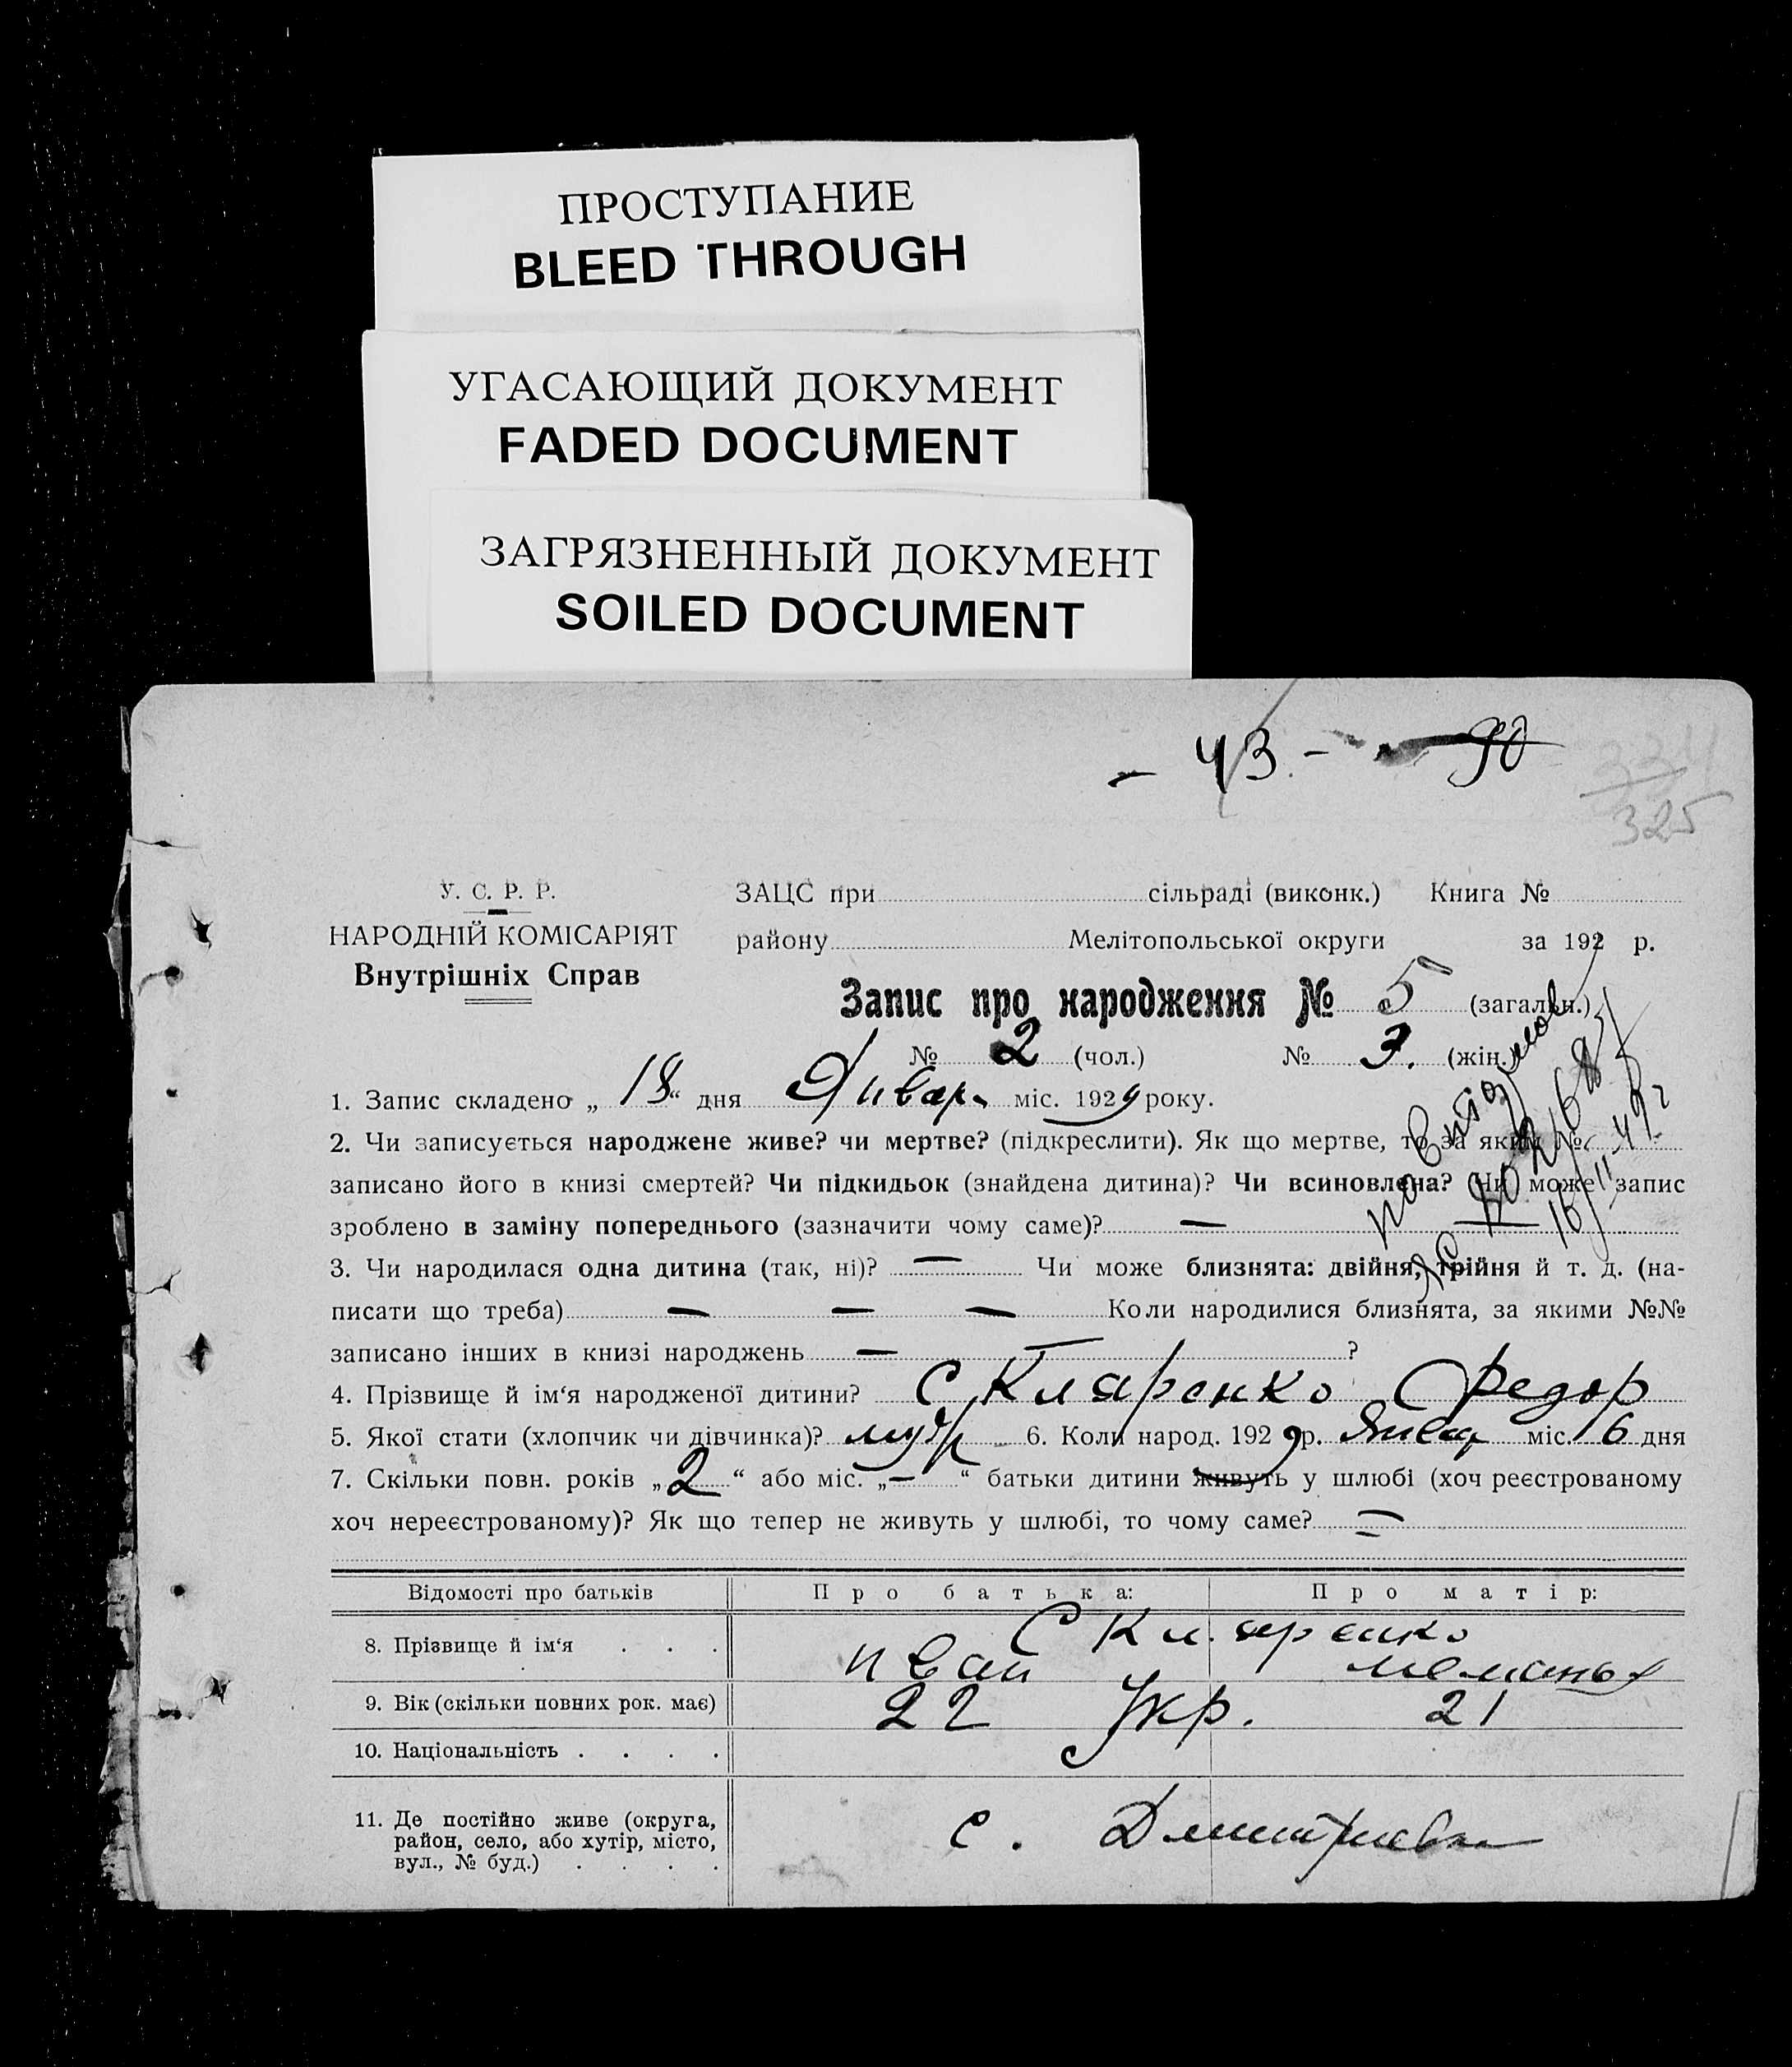 ПРОСТУПАНИЕ
BLEED THROUGH
УГАСАЮЩИЙ ДОКУМЕНТ
FADED DOCUMENT
ЗАГРЯЗНЕННЫЙ ДОКУМЕНТ
SOILED DOCUMENT
- 43 - 90
334
325
У. С. Р. Р.
НАРОДНІЙ КОМІСАРІЯТ
Внутрішніх Справ
ЗАЦС при сільраді (виконк.) Книга №
району Мелітопольської округи за 192 р.
Запис про народження № 5 (загальн.)
№ 2 (чол.) № 3. (жін.)
повито
16/II 49 г
1. Запис складено „ 18 “ дня Январ. міс. 1929 року.
2. Чи записується народжене живе? чи мертве? (підкреслити). Як що мертве, то за яким №
записано його в книзі смертей? Чи підкидьок (знайдена дитина)? Чи всиновлена? Чи може запис
зроблено в заміну попереднього (зазначити чому саме)? —
3. Чи народилася одна дитина (так, ні)? — Чи може близнята: двійня, трійня й т. д. (на-
писати що треба) — — — Коли народилися близнята, за якими №№
записано інших в книзі народжень — ?
4. Прізвище й ім‘я народженої дитини? Скляренко Федор
5. Якої стати (хлопчик чи дівчинка)? муж 6. Коли народ. 1929 р. Январ міс. 16 дня
7. Скільки повн. років „ 2 “ або міс. „ — “ батьки дитини живуть у шлюбі (хоч реєстрованому
хоч нереєстрованому)? Як що тепер не живуть у шлюбі, то чому саме? =
Відомості про батьків Про батька: Про матір:
Скляренко
8. Прізвище й ім‘я . . . Иван
9. Вік (скільки повних рок. має) 22 Укр. 21
10. Національність . . . .
11. Де постійно живе (округа,
район, село, або хутір, місто,
вул., № буд.) . . . .
с. Дмитриевка